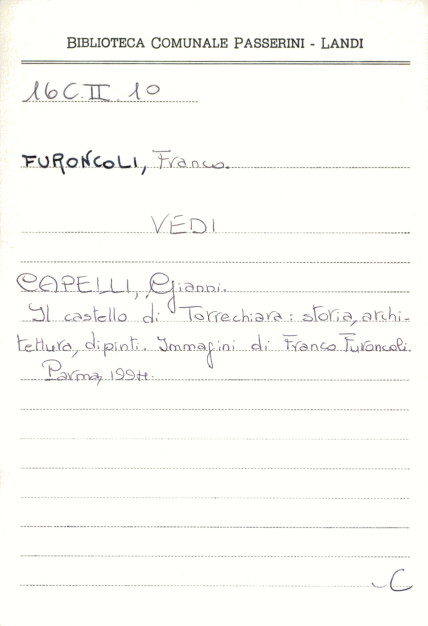 BIBLIOTECA COMUNALE PASSERINI - LANDI
16C.II.10
FURONCOLI, Franco.
VEDI
CAPELLI, Gianni.
Il castello di Torrechiara: storia, archi-
tettura, dipinti. Immagini di Franco Furoncoli.
Parma, 1994.
C